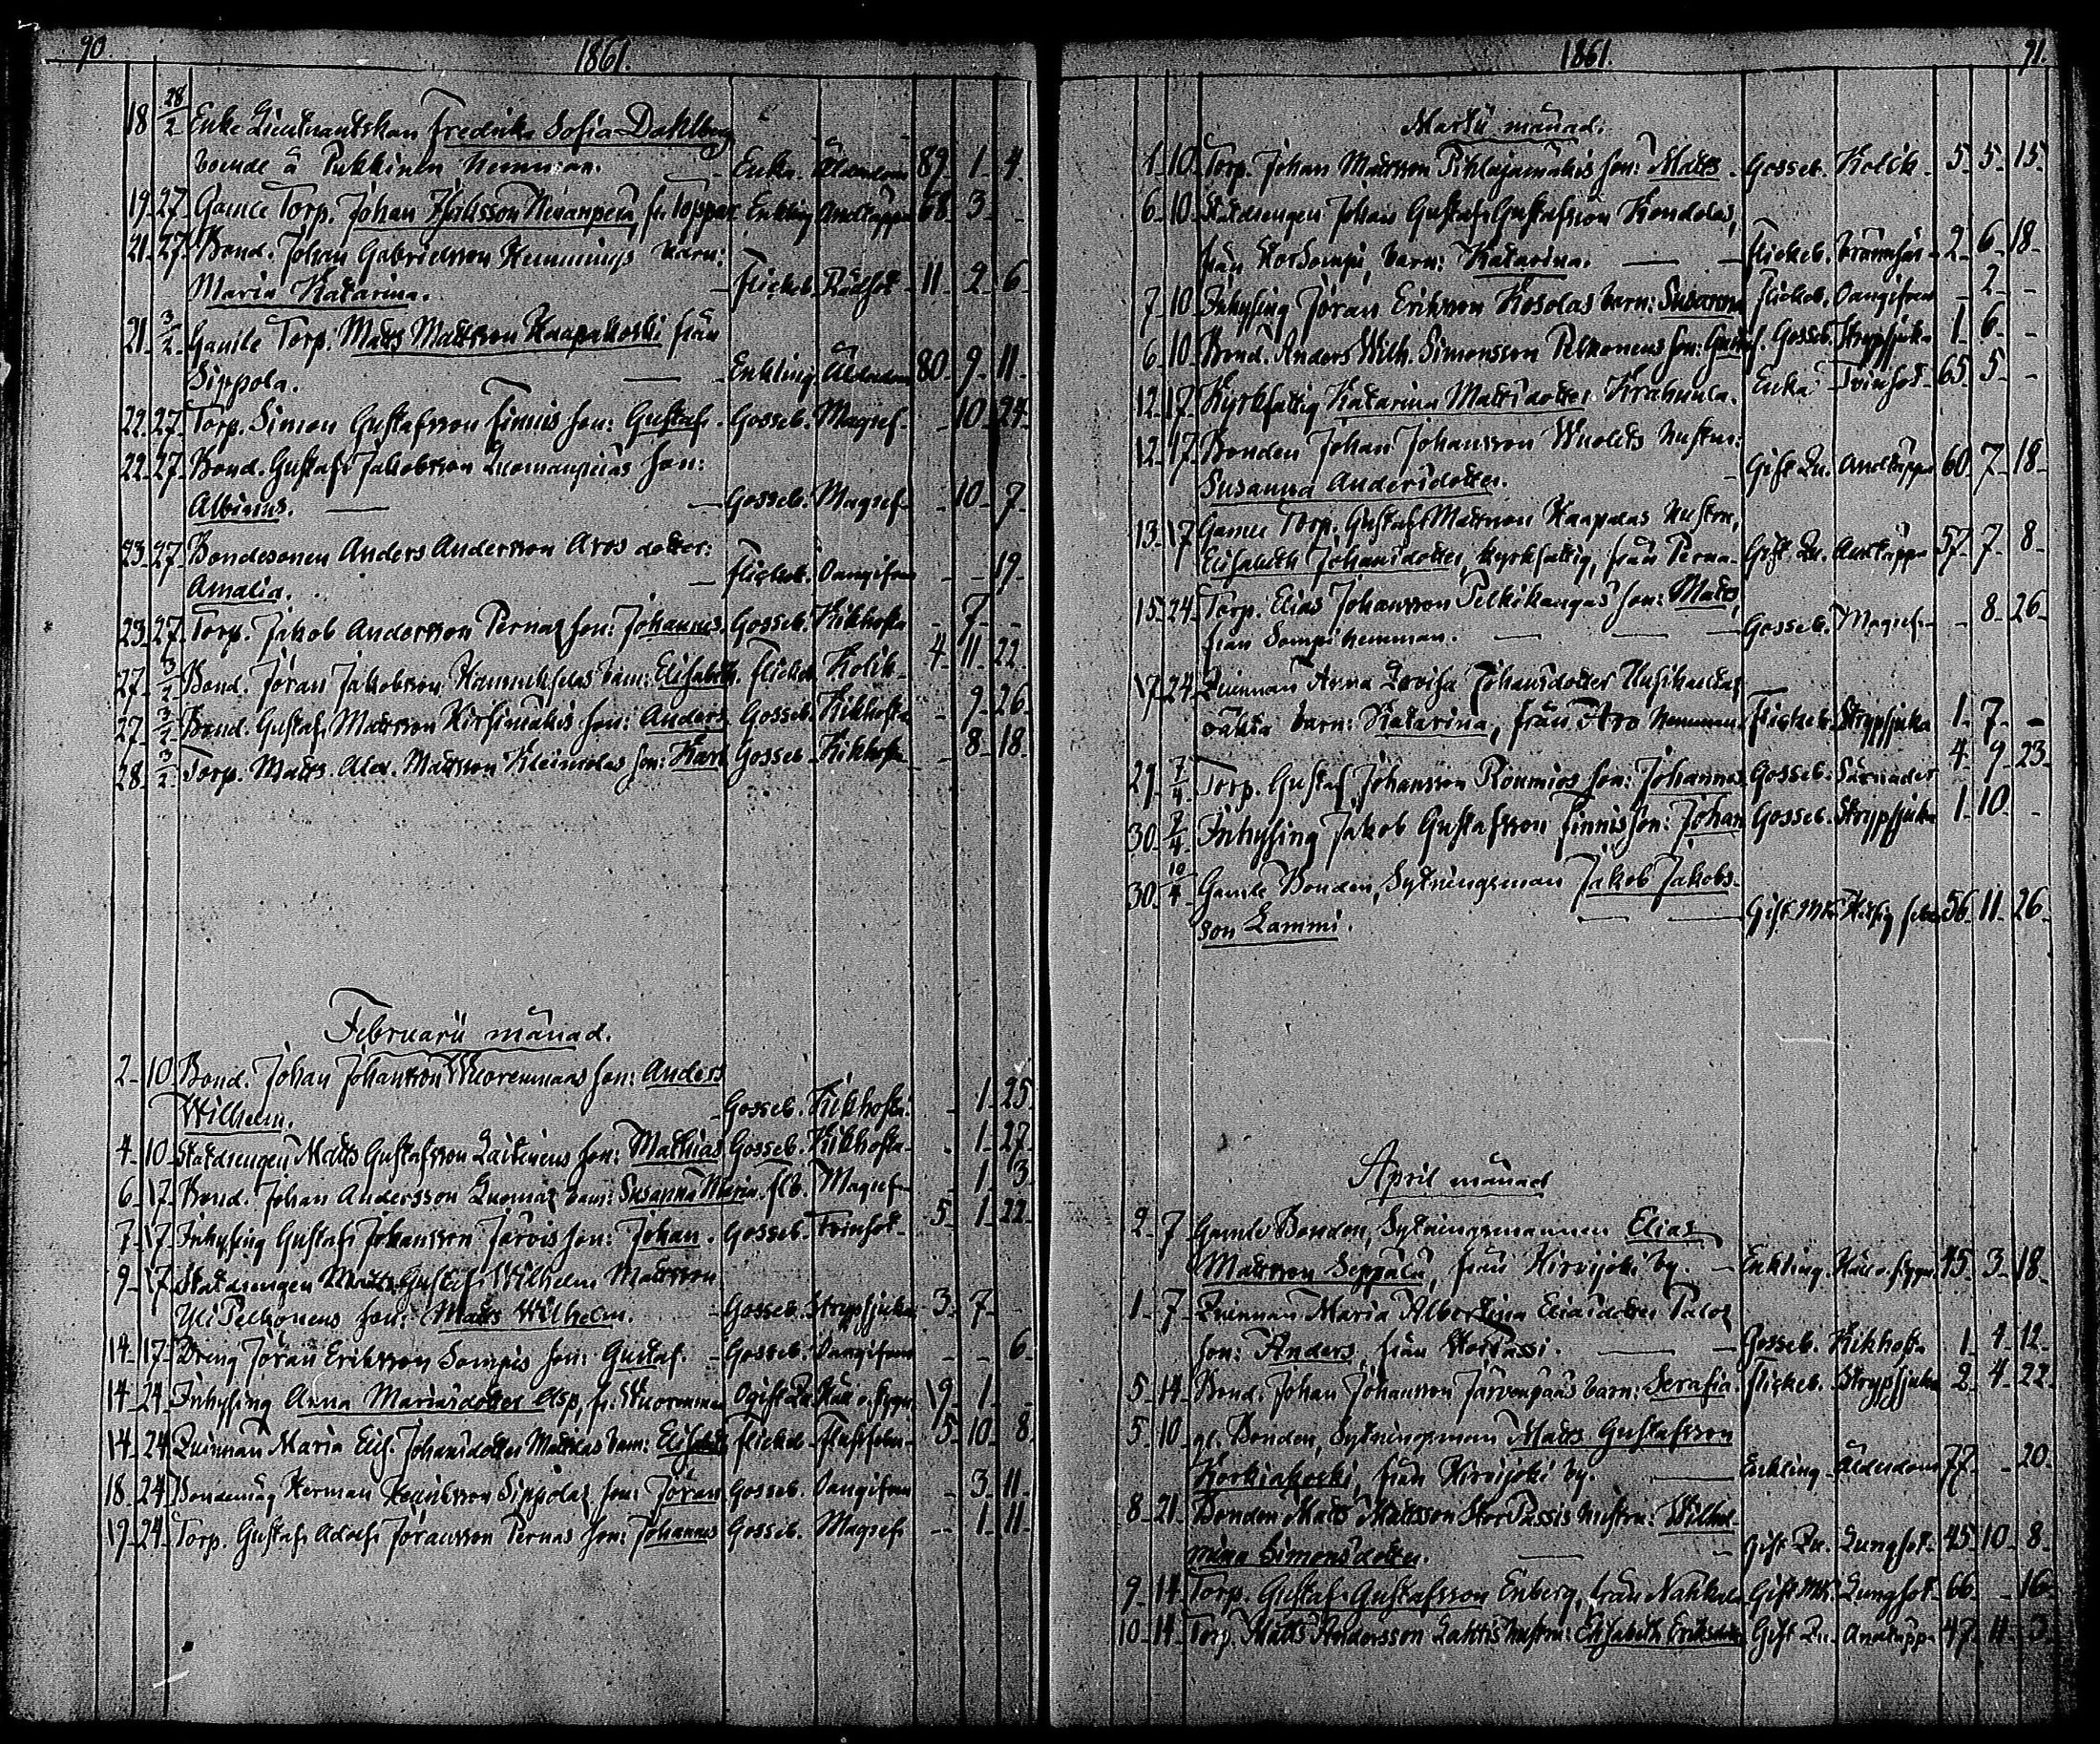 90. 1861.
18 28/2 Enke Lieutnantskan Fredrika Sofia Dahlberg
boende å Pukkinen hemman. Enka. Ålderdom 89. 1. 4.
19. 27. Gamle Torp. Johan fr. Toppar Enkling Andtäppa 68. 3. -
21. 27. Bond. Johan Gabrielsson Hemmings barn:
Maria Katarina. - Flickeb. Rödsot 11. 2. 6.
21. 3/2 Gamle Torp. Matts Mattsson Haapakoski från
Sippola. - Enkling Ålderdom 80. 9. 11.
22. 27. Torp. Simon Gustafsson Finnis son: Gustaf. Gosseb. Magref. - 10. 24.
22. 27. Bond. Gustaf Jakobsson son:
Albinus. - Gosseb. Magref. - 10. 7.
23. 27. Bondesonen Anders Andersson Aros dotter:
Amalia. - Flickeb. Oangifven - - 19.
23. 27. Torp. Jakob Andersson Pernas son: Johannes. Gosseb. Kikhosta - 7. -
27. 3/2 Bond. Jöran Jakobsson barn: Elisabeth. Flickeb. Kolik. 4. 11. 22.
27. 3/2 Bond. Gustaf Mattsson Kirsimäkis son: Anders Gosseb. Kikhosta - 9. 26.
28. 3/2 Torp. Matts Alex. Mattsson Kleimolas son: Karl Gosseb. Kikhosta - 8. 18.
Februarii månad.
2. 10. Bond. Johan Johansson Wuorenmaas son: Anders
Wilhelm. - Gosseb. Kikhosta. - 1. 25.
4. 10. Statdrengen Matts Gustafsson Laitinens son: Mathias Gosseb. Kikhosta. - 1. 27.
6. 17. Bond. Johan Andersson Luomas barn: Susanna Maria. flb. Magref. - 1. 3.
7. 17. Inhysing Gustaf Johansson Järvis son: Johan. Gosseb. Tvinsot. 5. 1. 22.
9. 17. Statdrengen Gustaf Wilhelm Mattsson
Yli Pelkonens son: Matts Wilhelm. - Gosseb. Strypsjuka 3. 7. -
14. 17. Dreng Jöran Eriksson Sompis son: Gustaf. - Gosseb. Oangifven - - 6.
14. 24. Inhysing Anna Mariasdotter Asp, fr. Wuorenmaa Ogift Qv. 19. 1. -
14. 24. Quinnan Maria Elis. Johansdotter Mattilas barn: Elisabeth Flickeb. 5. 10. 8.
18. 24. Bondemåg Herman Henriksson Sippolas son: Jöran Gosseb. Oangifven - 3. 11.
19. 24. Torp. Gustaf Adolf Jöransson Pernas son: Johannes Gosseb. Magref. - 1. 11.
1861. 91.
Martii månad.
1. 10. Torp. Johan Mattsson Pihlajamäkis son: Matts. Gosseb. Kolik. 5. 5. 15.
6. 10. Statdrengen Johan Gustaf Gustafsson Kondolas,
från StorSompi, barn: Katarina. - Flickeb. 2. 6. 18.
7. 10. Inhysing Jöran Eriksson Kosolas barn: Susanna Flickeb. Oangifven - 2. -
6. 10. Bond. Anders Wilh. Simonsson Pelkonens son: Gustaf. Gosseb. Strypsjuka 1. 6. -
12. 17. Kyrkfattig Katarina Mattsdotter Krakuula. Enka Tvinsot. 65. 5. -
12. 17. Bonden Johan Johansson Wuolets hustru:
Susanna Andersdotter. - Gift Qv. Andtäppa 60. 7. 18.
13. 17. Gamle Torp. Gustaf Mattsson Haapalas hustru,
Elisabeth Johansdotter, kyrkfattig, från Perna. Gift Qv. Andtäppa 57. 7. 8.
15. 24. Torp. Elias Johansson Pelkikangas son: Matts,
från Sompi hemman. - Gosseb. Magref. - 8. 26.
17. 24. Quinnan Anna Lovisa Johansdotter
oäkta barn: Katarina, från Aro hemman. Flickeb. Strypsjuka 1. 7. -
29. 7/4 Torp. Gustaf Johansson Roumios son: Johannes Gosseb. Särnader 4. 9. 23.
30. 7/4 Inhysing Jakob Gustafsson Finnis son: Johan Gosseb. Strypsjuka 1. 10. -
30. 10/4 Gamle Bonden, Sytningsman Jakob Jakobs-
son Lammi. - Gift Mk. Hitsig feber 56. 11. 26.
April månad
2. 7. Gamle Bonden, Sytningsmannen Elias
Mattsson Seppälä, från Hirvijoki by. - Enkling. 45. 3. 18.
1. 7. Quinnan Maria Albertina Eliasdotter Palos
son: Anders, från StorPassi. - Gosseb. Kikhosta 1. 4. 12.
5. 14. Bond. Johan Johansson Järvenpääs barn: Serafia. Flickeb. Strypsjuka 2. 4. 22.
5. 10. gl. Bonden, Sytningsman Matts Gustafsson
Korkiakoski, från Hirvijoki by. - Enkling. Ålderdom 77. - 20.
8. 21. Bonden Matts Mattsson StorPassis hustru: Wilhel-
mina Simonsdotter. - Gift Qv. Lungsot. 45. 10. 8.
9. 14. Torp. Gustaf Gustafsson Enberg, från Nahkala Gift Mk. Lungsot. 66. - 16.
10. 14. Torp. Matts Andersson Lahtis hustru: Elisabeth Eriksdotter Gift Qv. Andtäppa 47. 11. 3.